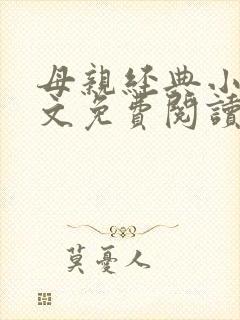 母親經典小
文免費閱讀
莫憂人